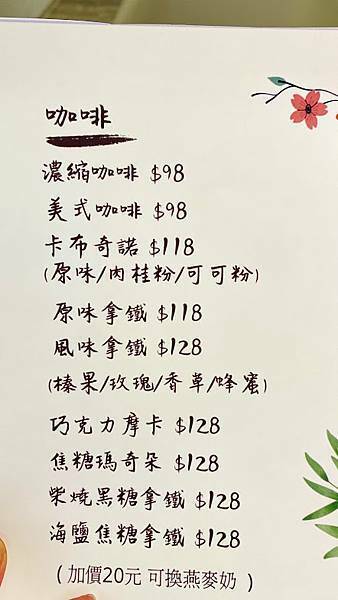 咖啡
濃縮咖啡 $98
美式咖啡 $98
卡布奇諾 $118
(原味/肉桂粉/可可粉)
原味拿鐵 $118
風味拿鐵 $128
(榛果/玫瑰/香草/蜂蜜)
巧克力摩卡 $128
焦糖瑪奇朵 $128
柴燒黑糖拿鐵 $128
海鹽焦糖拿鐵 $128
(加價20元 可換燕麥奶 )